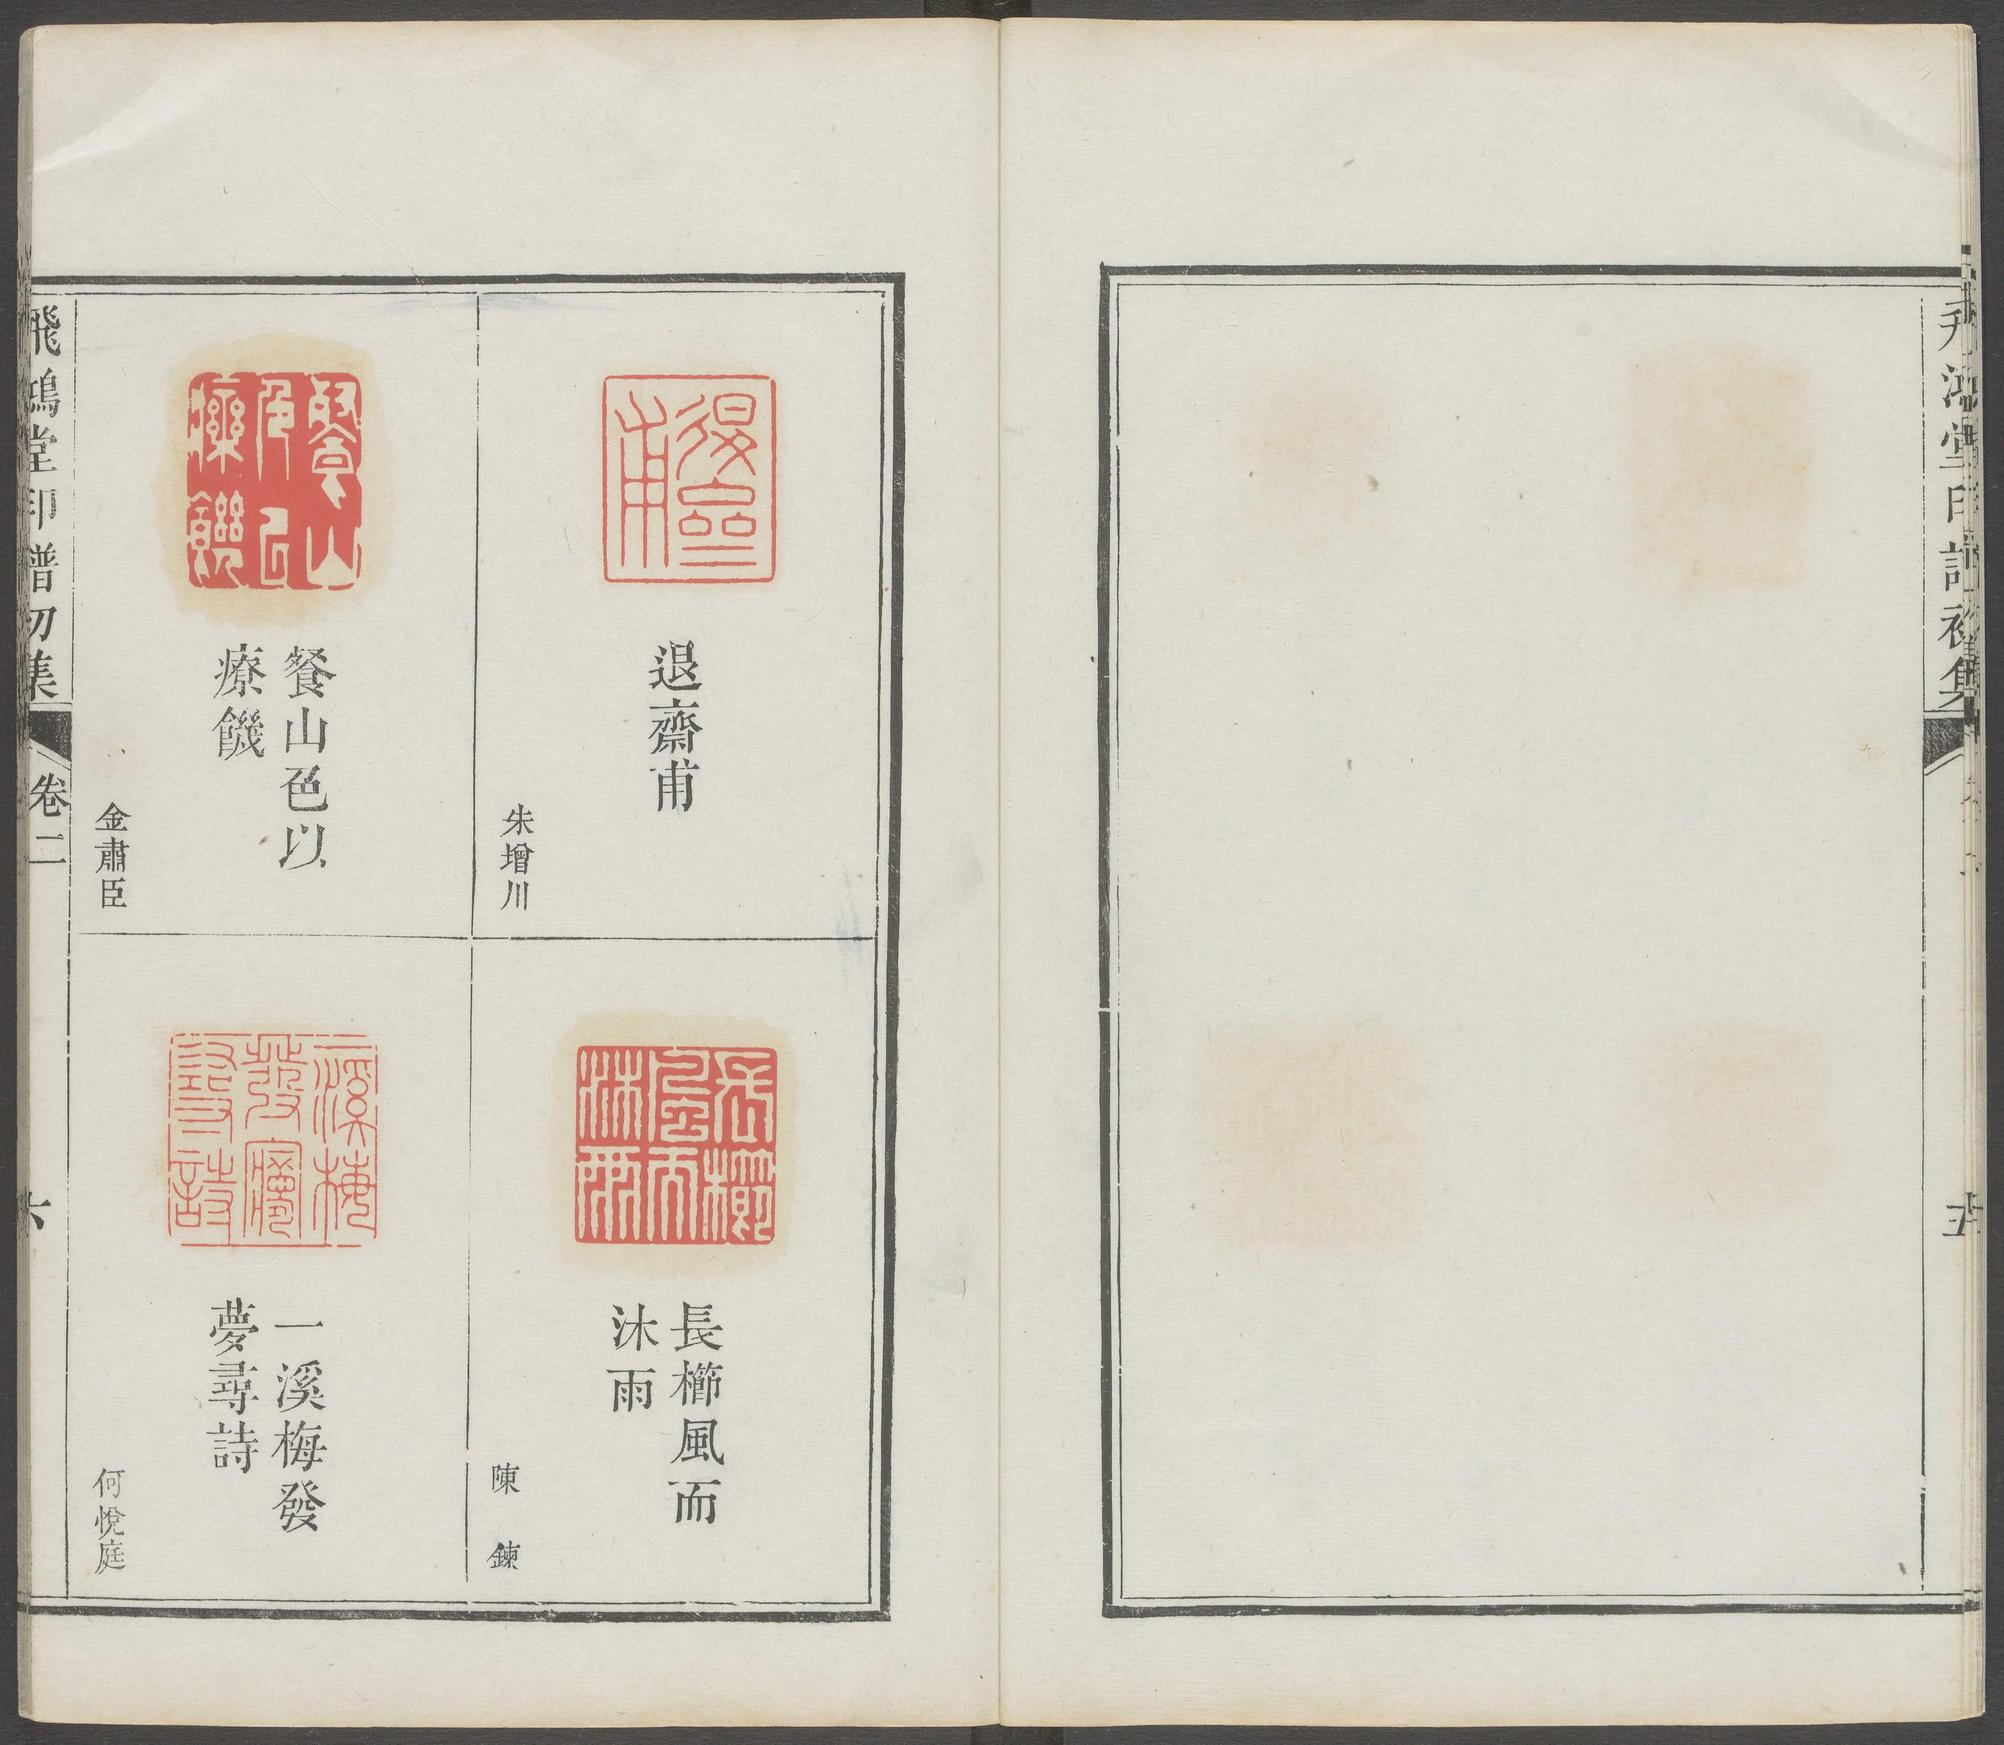 飛鴻堂印譜初集
五
退齋甫
朱增川
長櫛風而
沐雨
陳鍊
餐山色以
療饑
金肅臣
一溪梅發
夢尋詩
何悅庭
飛鴻堂印譜初集
卷二
六